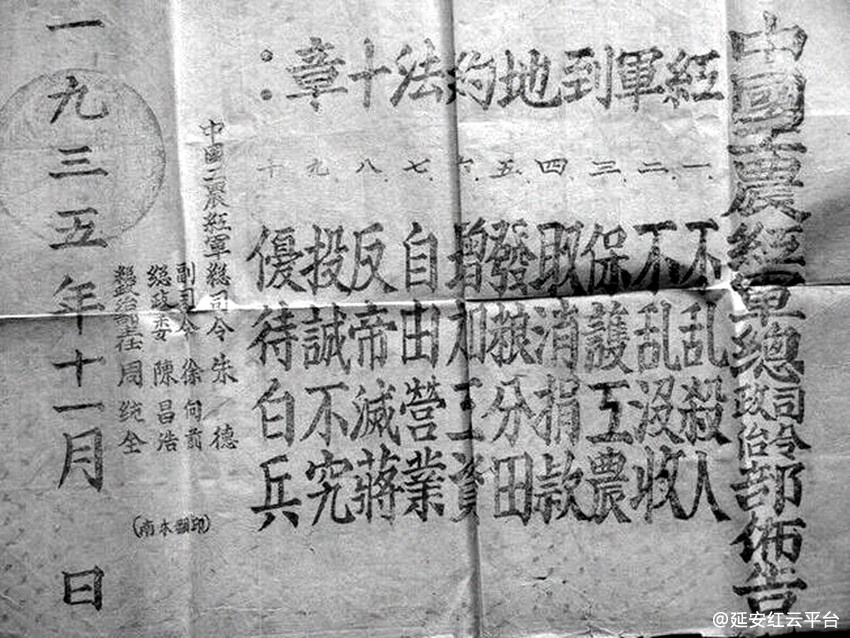 中國工農紅軍總司令政治部佈告
紅軍到地約法十章：
一、不乱殺人
二、不乱没收
三、保護工農
四、取消捐款
五、發粮分田
六、增加工資
七、自由營業
八、反帝滅蔣
九、投誠不究
十、優待白兵
中國工農紅軍總司令 朱德
副司令 徐向前
總政委 陳昌浩
總政治部主任 周纯全
一九三五年十一月 日
@延安红云平台